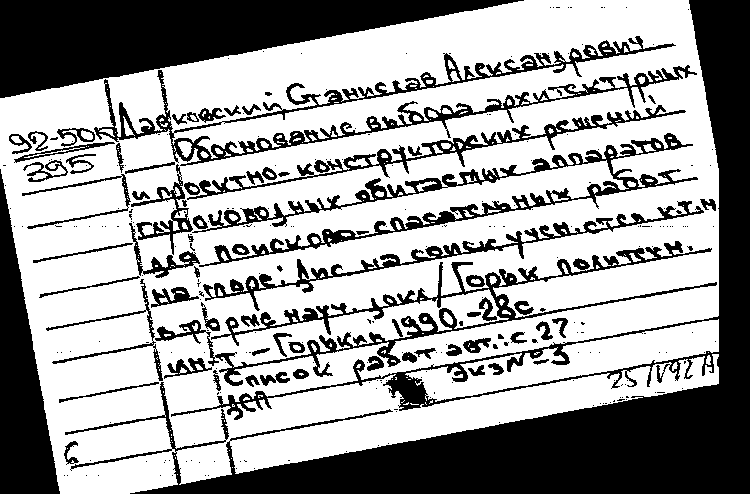 92-50п Лавковский, Станислав Александрович
395 Обоснование выбора архитектурных
и проектно-конструкторских решений
глубоководных обитаемых аппаратов
для поисково-спасательных работ
на море: Дис на соиск учен. степ к.т.н
в форме науч. докл / Горьк. политехн.
ин-т. - Горький, 1990. - 28с.
Список работ авт.: с. 27.
ДСП Экз №3
25/IV92